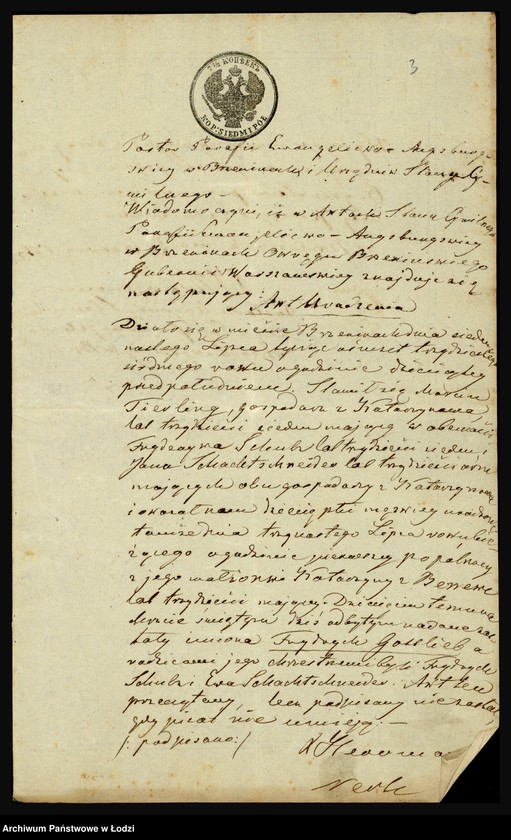 7½ КОПѢЕКЪ
KOP: SIEDM I PÓŁ
3
Pastor Parafii Ewangelicko-Augsburg-
skiey w Brzezinach i Urzędnik Stanu Cy-
wilnego
Wiadomo czyni, iż w Aktach Stanu Cywilnego
Parafii Ewangelicko-Augsburgskiey
w Brzezinach Okręgu Brzezińskiego
Gubernii Warszawskiey znayduje się
następujący: Akt Urodzenia
Działo się w mieście Brzezinach dnia siedem-
nastego Lipca tysiąc ośmset trzydziestego
siódmego roku o godzinie dziewiątey
przed południem. Stawił się Marcin
Tierling, gospodarz z Katarzynowa
lat trzydzieści siedem mający w obecności
Frydryka Schulz lat trzydzieści siedem,
Jana Schachtschneider lat trzydzieści
mających obu gospodarzy z Katarzynowa
i okazał nam dziecię płci męzkiey urodzone
tamże dnia trzynastego Lipca roku bie-
żącego o godzinie pierwszey po północy
z jego małżonki Katarzyny z
lat trzydzieści mającey. Dziecięciu temu na
chrzcie świętym dziś odbytym nadane zo-
stały imiona Frydrych Gottlieb a
rodzicami jego chrzestnemi byli Frydrych
Schulz i Ewa Schachtschneider. Akt ten
przeczytany, lecz podpisany nie został,
gdy pisać nie umieją.—
/: podpisano :/
Archiwum Państwowe w Łodzi